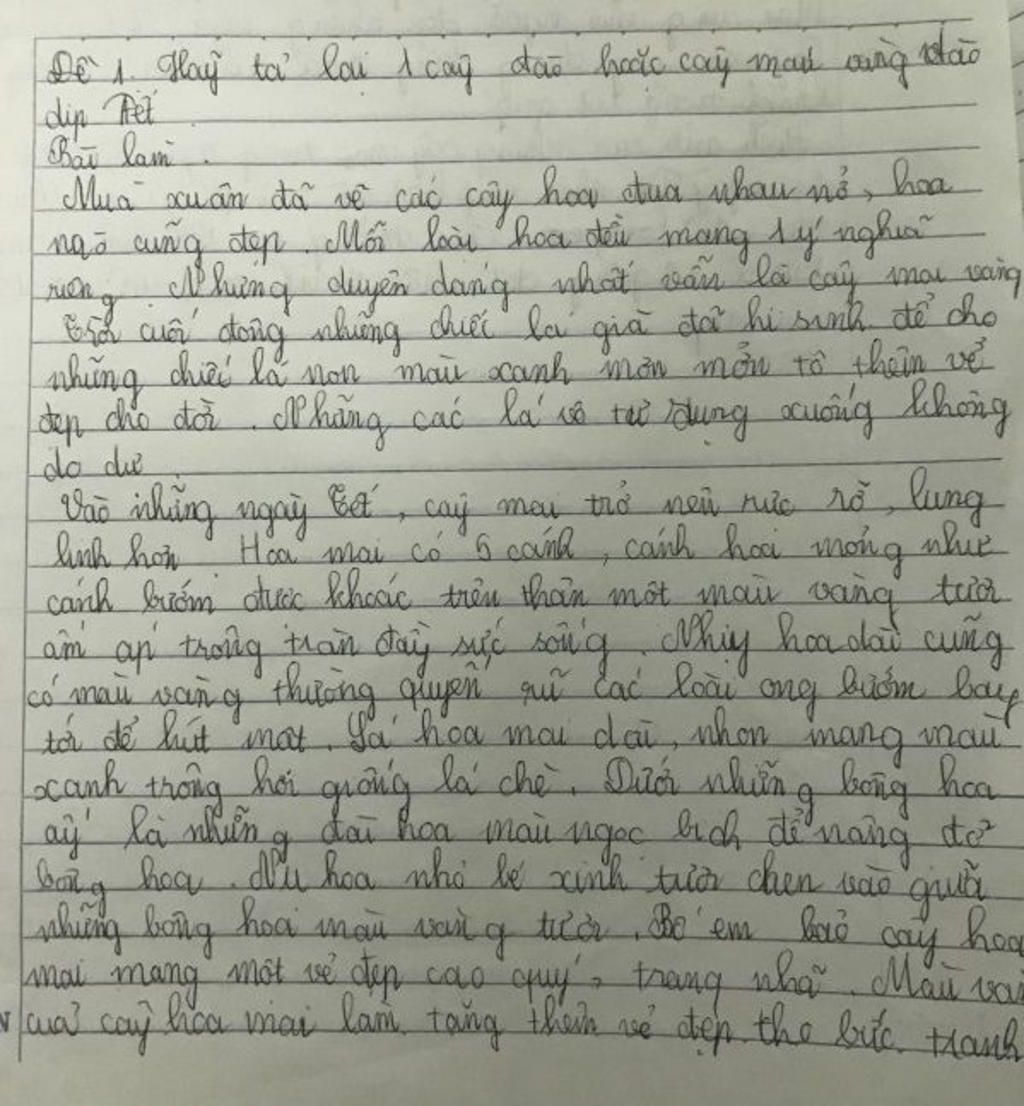 Đề 1. Hãy tả lại 1 cây đào hoặc cây mai vàng vào
dịp Tết
Bài làm.
Mùa xuân đã về các cây hoa đua nhau nở, hoa
nào cũng đẹp. Mỗi loài hoa đều mang 1 ý nghĩa
riêng. Nhưng duyên dáng nhất vẫn là cây mai vàng
Trời cuối đông những chiếc lá già đã hi sinh để cho
những chiếc lá non màu xanh mơn mởn tô thêm vẻ
đẹp cho đời. Nhẵng các lá vô tư rụng xuống không
do dự.
Vào những ngày Tết, cây mai trở nên rực rỡ, lung
linh hơn. Hoa mai có 5 cánh, cánh hoa mỏng như
cánh bướm được khoác trên thân một màu vàng tươi
ấm áp trông tràn đầy sức sống. Nhụy hoa dài cũng
có màu vàng thường quyến rũ các loài ong bướm bay
tới để hút mật. Lá hoa mai dài, nhọn mang màu
xanh trông hơi giống lá chè. Dưới những bông hoa
ấy là những đài hoa màu ngọc bích để nâng đỡ
bông hoa. Nụ hoa nhỏ bé xinh tươi chen vào giữa
những bông hoa màu vàng tươi. Bố em bảo cây hoa
mai mang một vẻ đẹp cao quý, trang nhã. Màu và
của cây hoa mai làm tăng thêm vẻ đẹp cho bức tranh